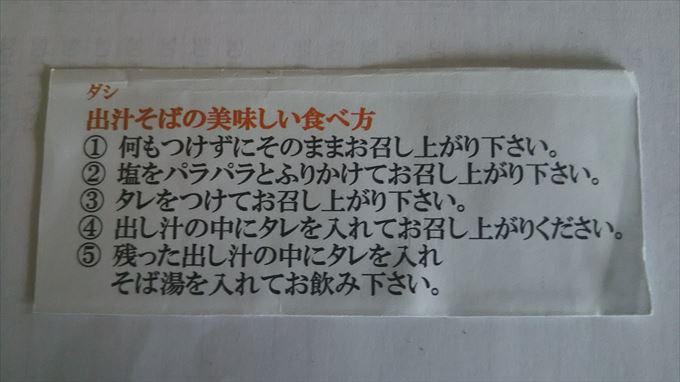 ダシ
出汁そばの美味しい食べ方
① 何もつけずにそのままお召し上がり下さい。
② 塩をパラパラとふりかけてお召し上がり下さい。
③ タレをつけてお召し上がり下さい。
④ 出し汁の中にタレを入れてお召し上がりください。
⑤ 残った出し汁の中にタレを入れ
そば湯を入れてお飲み下さい。